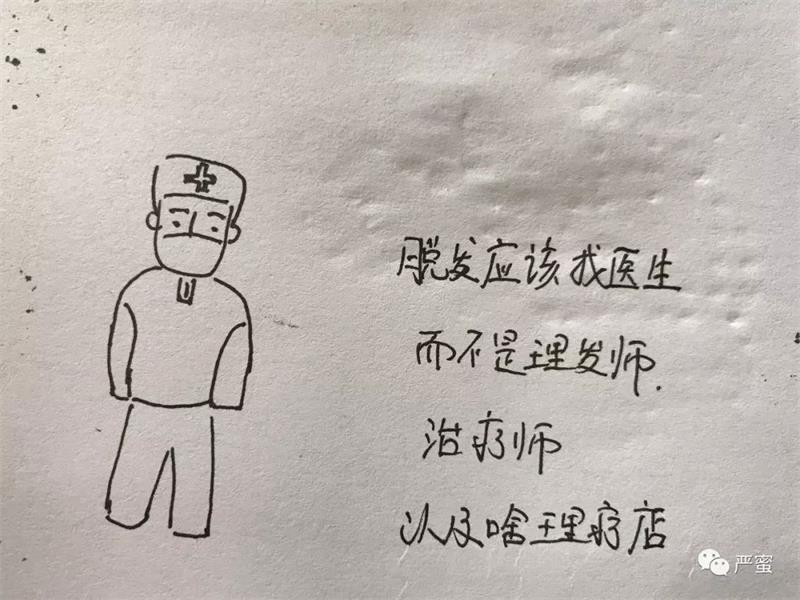 脱发应该找医生
而不是理发师.
治疗师
以及啥理疗店
严蜜